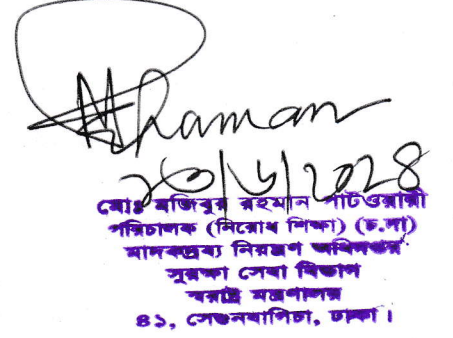 Rhaman
২৩/৬/২০২৪
মোঃ মজিবুর রহমান পাটওয়ারী
পরিচালক (নিরোধ শিক্ষা) (চ.দা)
মাদকদ্রব্য নিয়ন্ত্রণ অধিদপ্তর
সুরক্ষা সেবা বিভাগ
স্বরাষ্ট্র মন্ত্রণালয়
৪১, সেগুনবাগিচা, ঢাকা।